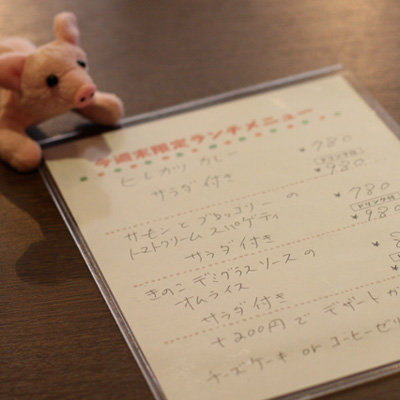 今週末限定ランチメニュー
ヒレカツカレー ¥780
サラダ付き ドリンク付 ¥980
サーモンとブロッコリーの ¥780
トマトクリームスパゲティ ドリンク付 ¥980
サラダ付き
きのこデミグラスソースの ¥8
オムライス ¥
サラダ付き
+200円でデザートが
チーズケーキ or コーヒーゼリ